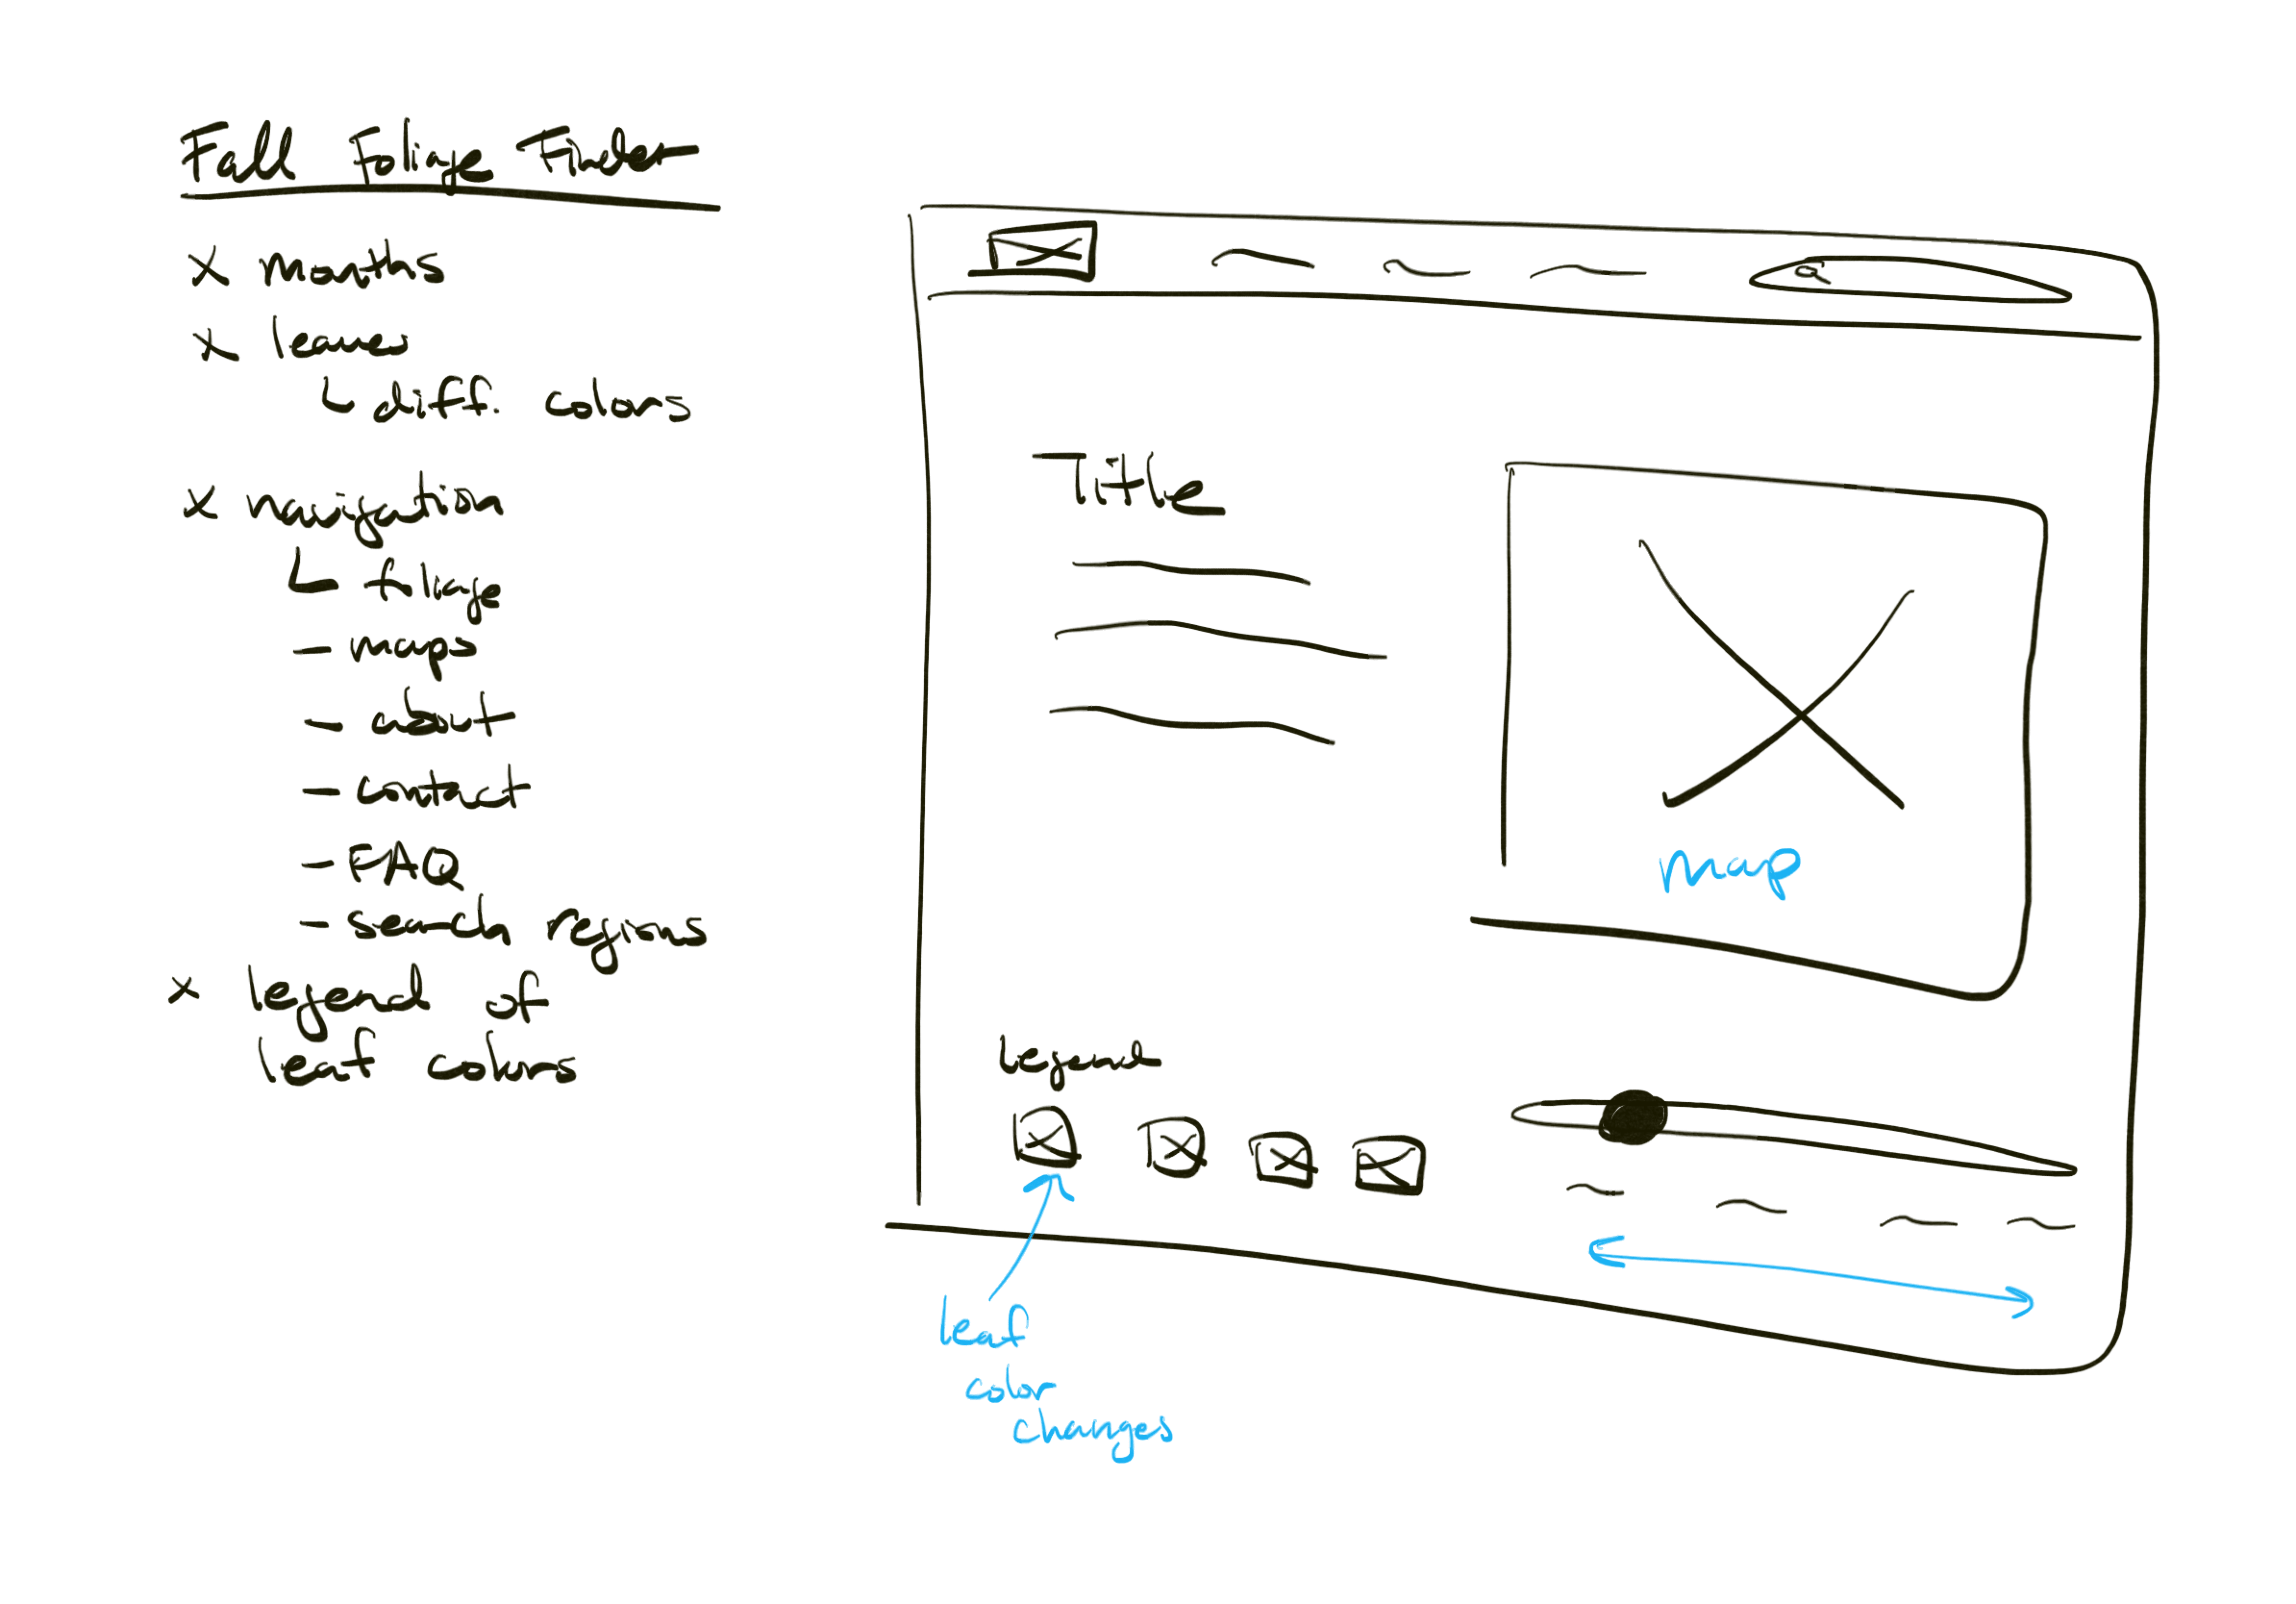 Fall Foliage Finder
x months
x leaves
↳ diff. colors
x navigation
↳ foliage
- maps
- about
- contact
- FAQ
- search regions
x legend of
leaf colors
Title
map
Legend
leaf
color
changes